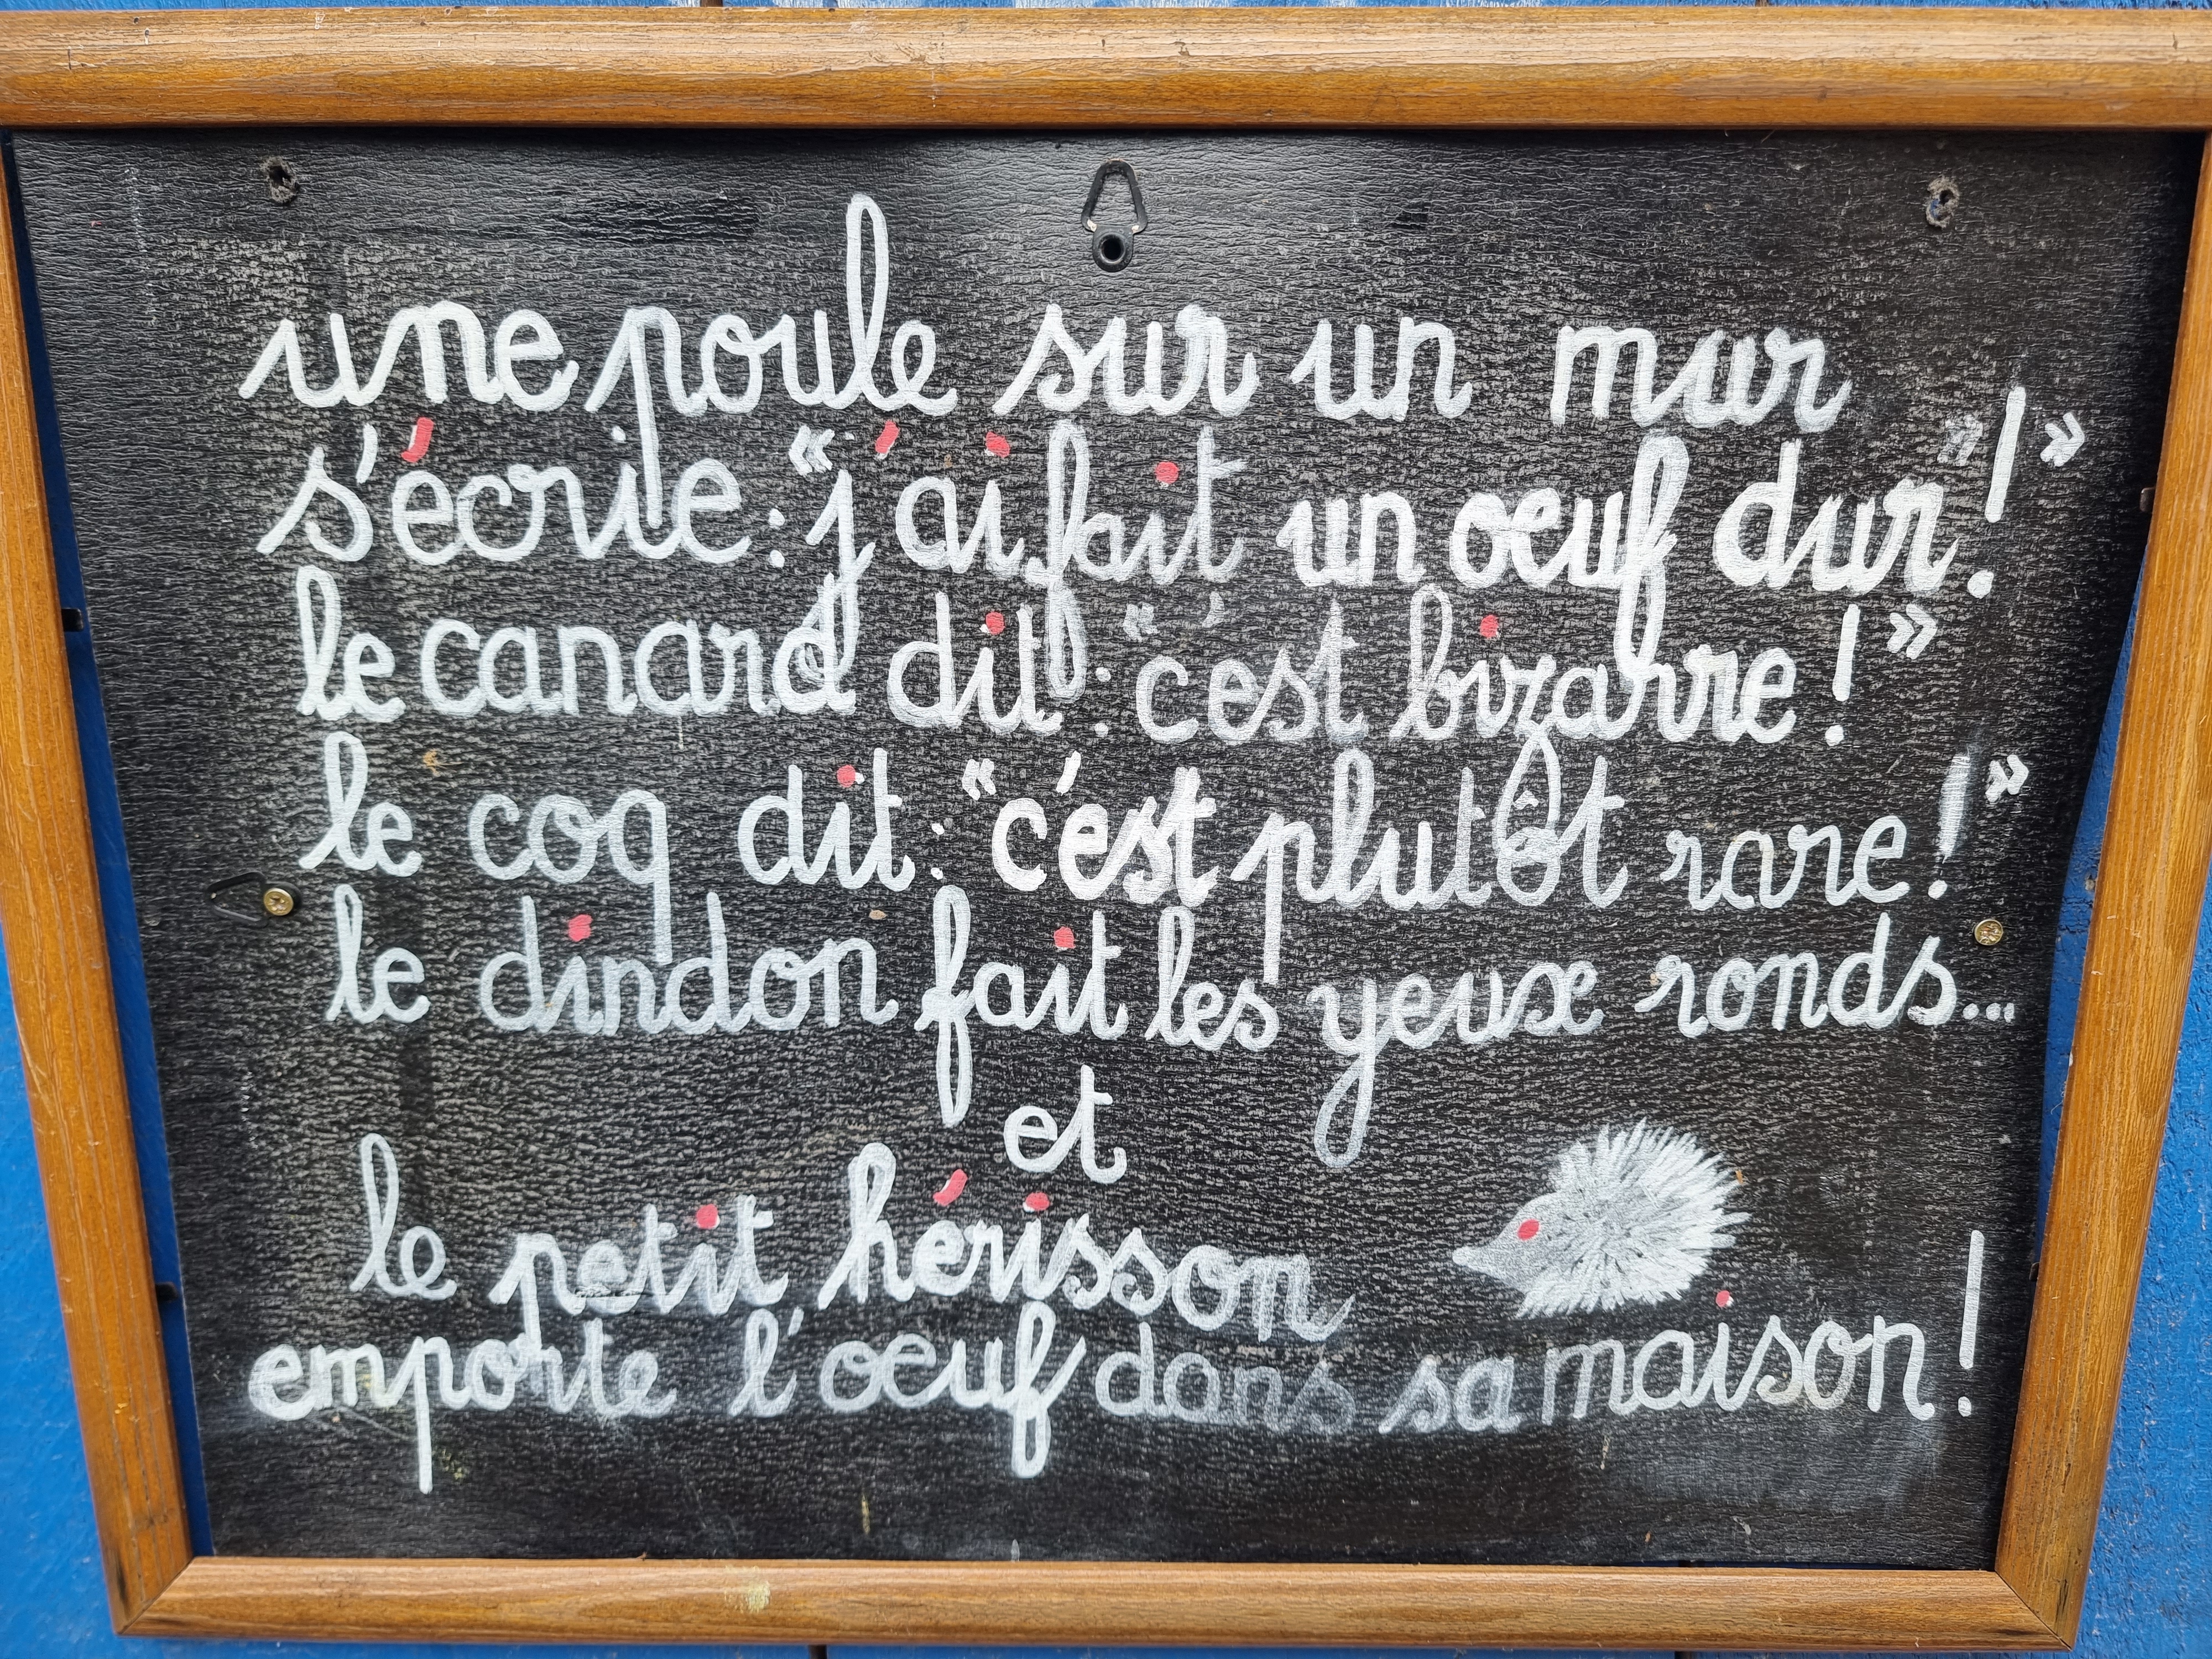 une poule sur un mur
s'écrie : « j'ai fait un oeuf dur ! »
le canard dit : « c'est bizarre ! »
le coq dit : « c'est plutôt rare ! »
le dindon fait les yeux ronds...
et
le petit hérisson
emporte l'oeuf dans sa maison !